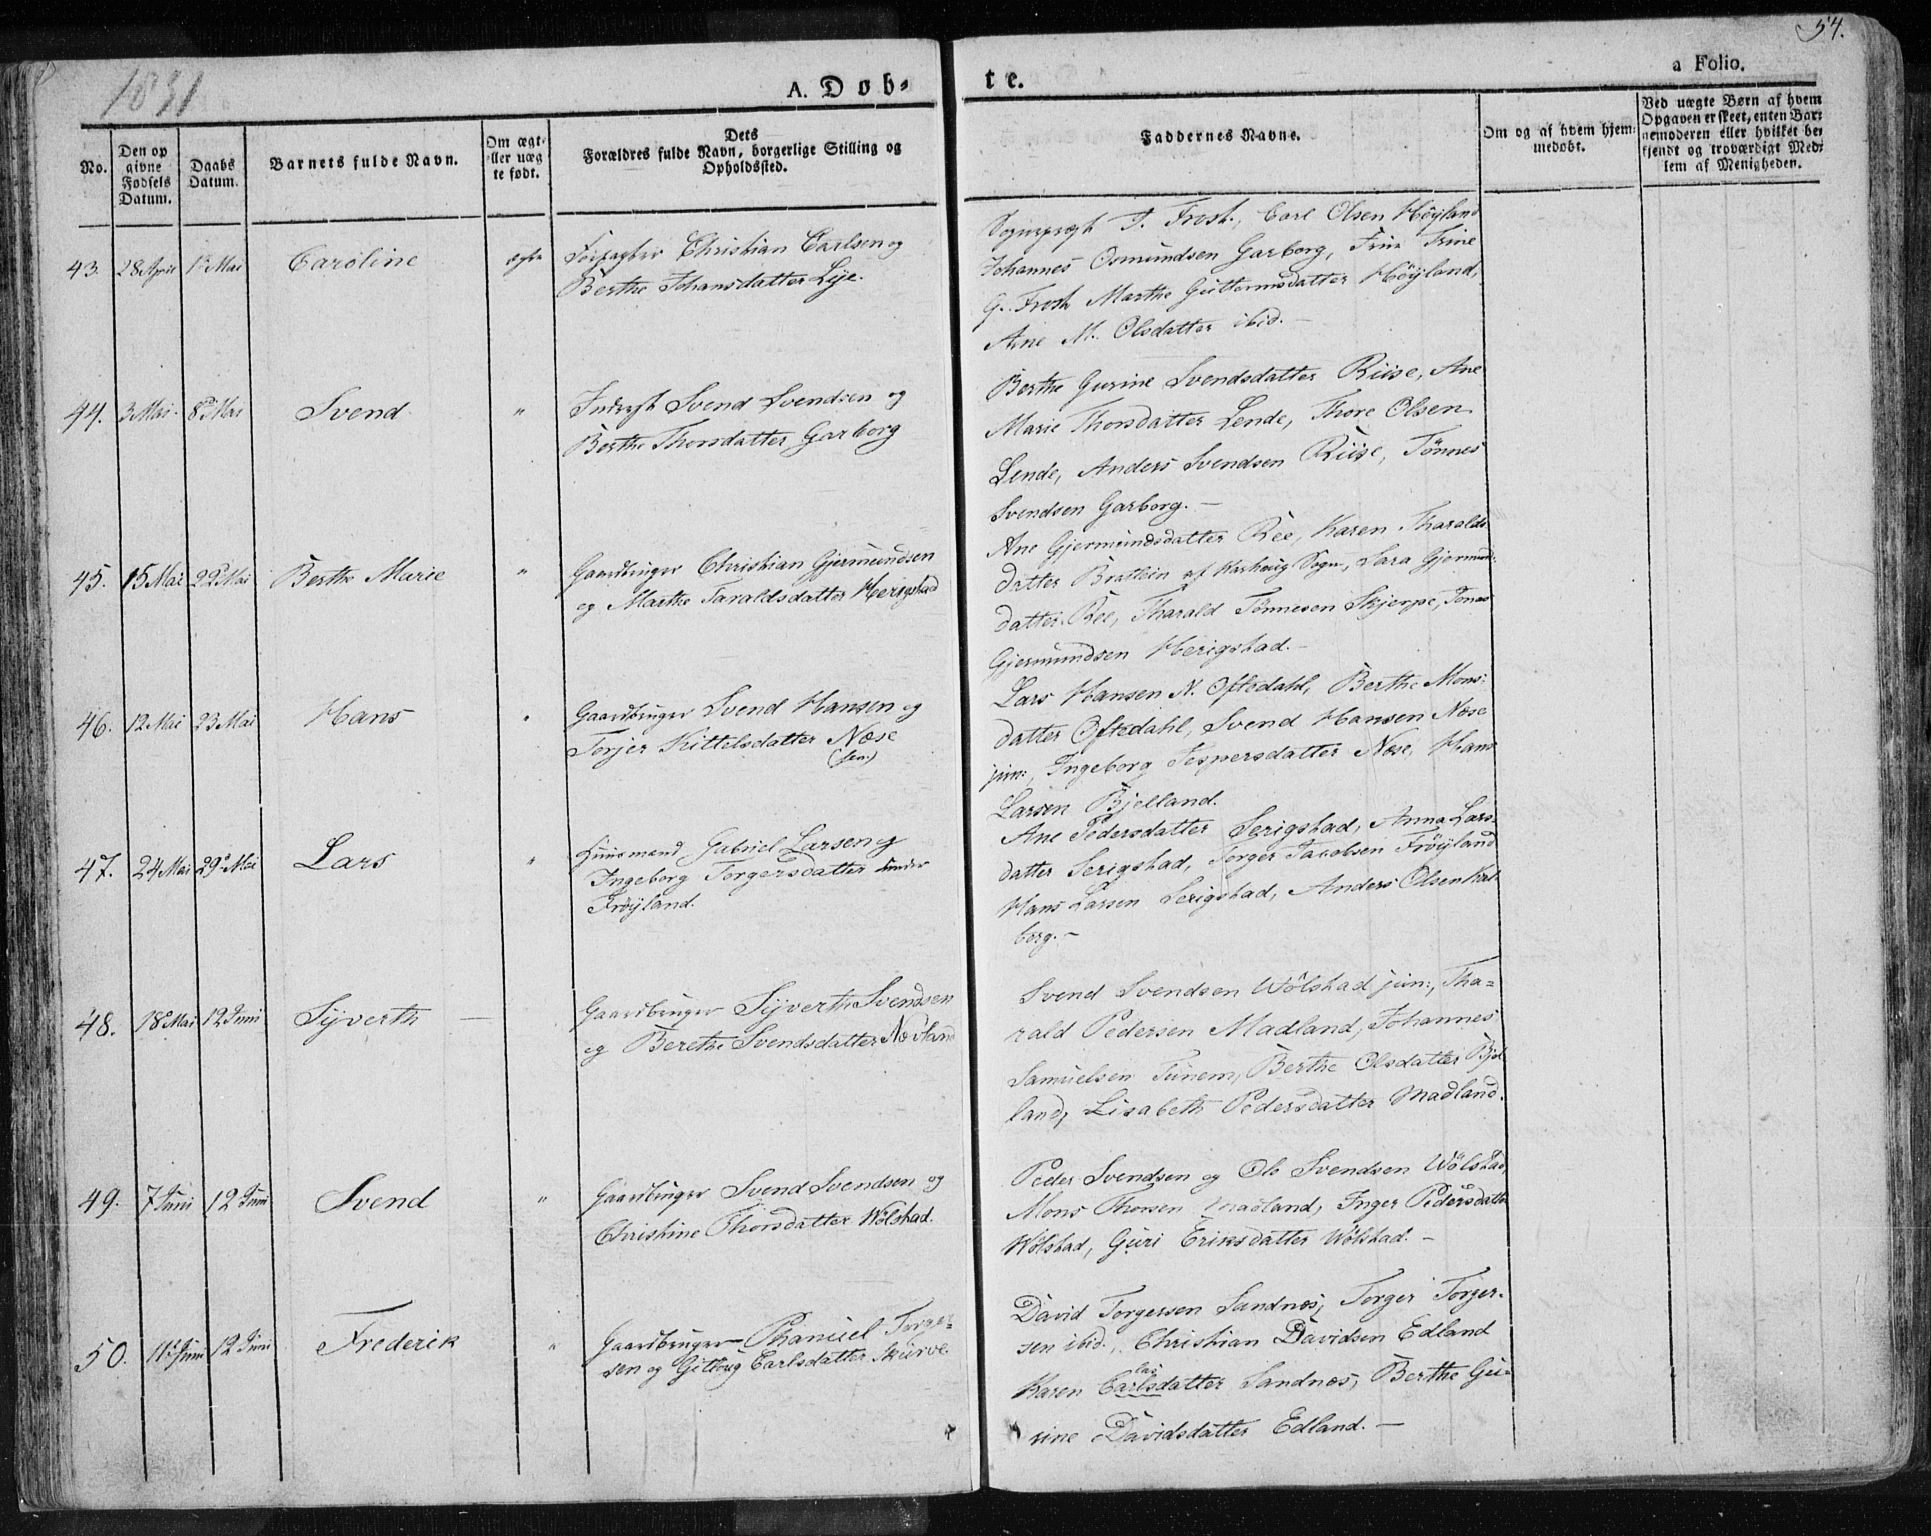 1831
54.
A. Døb-
te.
a Folio.
No.
Den op
givne
Fødsels
Datum.
Daabs
Datum.
Barnets fulde Navn.
Om ægt-
eller uæg
te født.
Dets
Forældres fulde Navn, borgerlige Stilling og
Opholdssted.
Faddernes Navne.
Om og af hvem hjem-
medøbt.
Ved uægte Børn af hvem
Opgaven er skeet, enten Bar-
nemoderen eller hvilket be-
kjendt og troværdigt Med-
lem af Menigheden.
43. 28 April 1 Mai Caroline ægte
Forpagter Christian Carlsen og
Berthe Johansdatter Lye.
Sognepræst P. Frost, Carl Olsen Höyland
Johannes Osmundsen Garborg, Frue Trine
G. Frost, Marthe Guttormsdatter Höyland,
Ane M. Olsdatter ibid. -
44. 3 Mai. 8 Mai Svend "
Svend Svendsen og
Berthe Thorsdatter Garborg
Berthe Gurine Svendsdatter Riise, Ane
Marie Thorsdatter Lende, Thore Olsen
Lende, Anders Svendsen Riise, Tönnes
Svendsen Garborg. -
45. 15 Mai 22 Mai Berthe Marie "
Gaardbruger Christian Gjermundsen
og Marthe Taraldsdatter Herigstad
Ane Gjermundsdatter Ree, Karen Tharalds
datter Brattein af Sogn, Lara Gjermund:
datter Ree, Tharald Tönnesen Skjerpe, Jonas
Gjermundsen Herigstad. -
46. 12 Mai 23 Mai Hans "
Gaardbruger Svend Hansen og
Torjer Kittelsdatter Nose
(sen:)
Lars Hansen N. Oftedahl, Berthe Mons:
datter Oftedahl, Svend Hansen Nose
jun:, Ingeborg Jespersdatter Nose, Hans
Larsen Bjelland.
47. 24 Mai 29 Mai Lars "
Huusmand Gabriel Larsen og
Ingeborg Torgersdatter under
Fröyland.
Ane Pedersdatter Serigstad, Anna Lars
datter Serigstad, Torger Jacobsen Fröyland
Hans Larsen Serigstad, Anders Olsen Kal
berg. -
48. 18 Mai 12 Juni Syverth -
Gaardbruger Syverth Svendsen
og Berethe Svendsdatter Nevland
Svend Svendsen Wölstad jun:, Tha=
rald Pedersen Madland, Johannes
Samuelsen Tunem, Berthe Olsdatter Bjel
land, Lisabeth Pedersdatter Madland.
49. 7 Juni 12 Juni Svend "
Gaardbruger Svend Svendsen og
Christine Thorsdatter Wölstad.
Peder Svendsen og Ole Svendsen Wölstad,
Mons Thorsen Madland, Inger Pedersdatter
Wölstad, Guri Eriksdatter Wölstad. -
50. 11 Juni 12 Juni Frederik "
Gaardbruger Phanuel Torger=
sen og Gitborg Carlsdatter Skurve
David Torgersen Sandnes, Torger Torger-
sen ibid., Christian Davidsen Edland
Karen Carlsdatter Sandnes, Berthe Gu=
rine Davidsdatter Edland. -